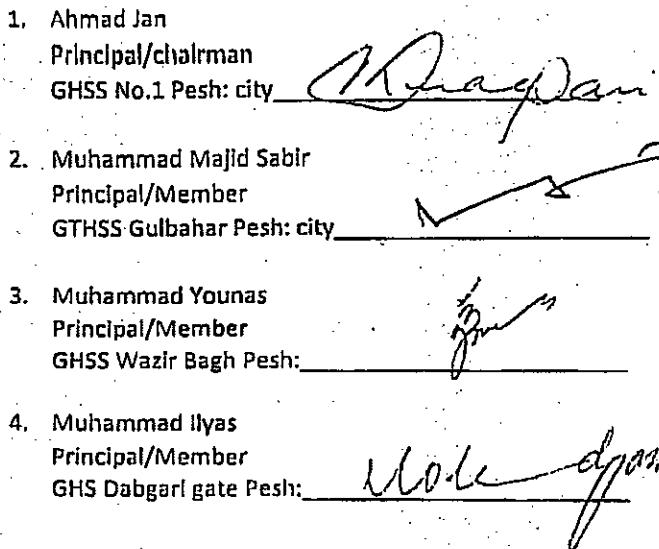 1. Ahmad Jan
Principal/chairman
GHSS No.1 Pesh: city
2. Muhammad Majid Sabir
Principal/Member
GTHSS Gulbahar Pesh: city
3. Muhammad Younas
Principal/Member
GHSS Wazir Bagh Pesh:
4. Muhammad Ilyas
Principal/Member
GHS Dabgari gate Pesh: